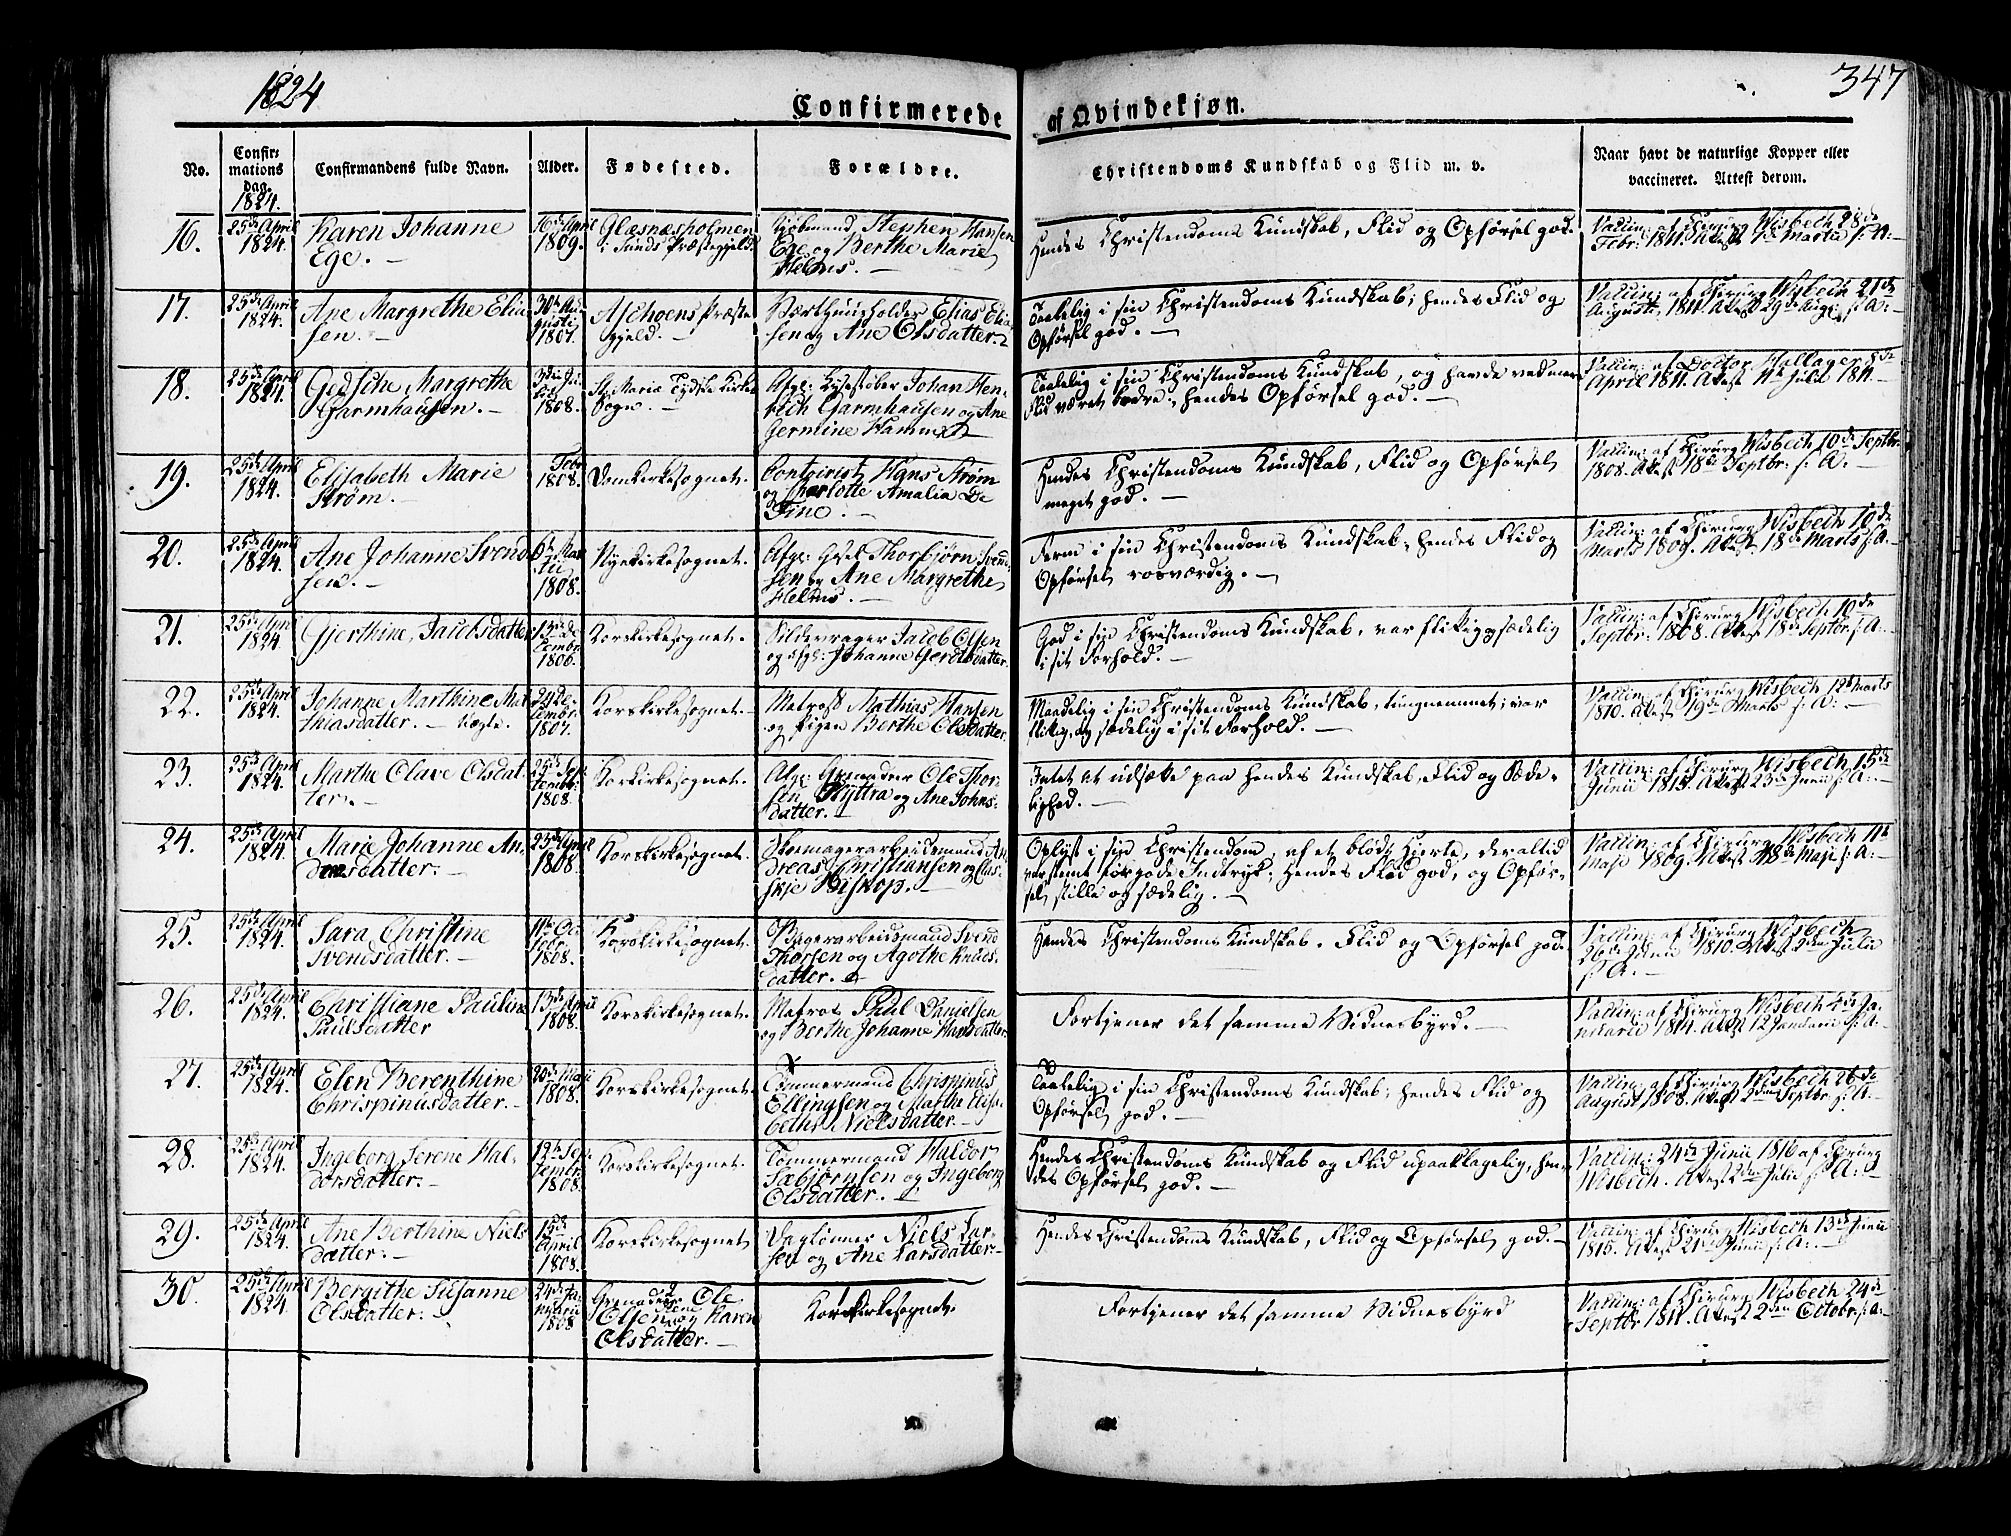 1824
347
Confirmerede
af Qvindekjøn.
No.
Confir-
mations
dag.
1824.
Confirmandens fulde Navn.
Alder.
Fødested.
Forældre.
Christendoms Kundskab og Flid m. v.
Naar havt de naturlige Kopper eller
vaccineret. Attest derom.
16.
25de April
1824.
Karen Johanne
Ege. —
16de April
1809.
Glæsnæsholmen
i Sunds Præstegjeld.
Kjøbmand Stephen Hansen
Ege og Berthe Marie
Helms. —
Hendes Christendoms Kundskab, Flid og Opførsel god.
Vaccin: af Chirurg Wisbech 28de
Febr: 1811. Attest 7de Martii s: A:—
17.
25de April
1824.
Ane Margrethe Elia-
sen. —
30te Au-
gusti
1807.
Aschoens Præste
gjeld. —
Værthuusholder Elias Elia-
sen og Ane Olsdatter. —
Taalelig i sin Christendoms Kundskab; hendes Flid og
Opførsel god. —
Vaccin: af Chirurg Wisbech 21de
Augusti 1811. Attest 29de Aug: s: A:—
18.
25de April
1824.
Gedsche Margrethe
Garmhausen. —
3die Ju-
1808.
St. Mariæ Tydske Kirke
Sogn. —
Afg: Lysestøber Johan Hen-
rich Garmhausen og Ane
Germine Hammer
Taalelig i sin Christendoms Kundskab, og havde ved mere
Flid været bedre, hendes Opførsel god. —
Vaccin: af Doctor Hallager 8de
April 1811. Attest 11te Julii 1811. —
19.
25de April
1824.
Elisabeth Marie
Strøm. —
Febr
1808.
Domkirkesognet.
Contoirist Hans Strøm
og Charlotte Amalia De
Fine. —
Hendes Christendoms Kundskab, Flid og Opførsel
meget god. —
Vaccin: af Chirurg Wisbech 10de Septbr:
1808. Attest 18de Septbr: s: A: —
20.
25de April
1824.
Ane Johanne Svend-
sen. —
1808.
Nyekirkesognet.
Afg: Thorbjørn Svend-
sen og Ane Margrethe
Helms. —
Ferm i sin Christendoms Kundskab, hendes Flid og
Opførsel rosværdig. —
Vaccin: af Chirurg Wisbech 10de
Marts 1809. Attest 18de Marts s: A:—
21.
25de April
1824.
Gjerthine Jacobsdatter
13de De-
cembr:
1806.
Korskirkesognet.
Sildevrager Jacob Olsen
og afg: Johanne Gerdtsdatter.
God i sin Christendoms Kundskab, var flittig og sædelig
i sit Forhold. —
Vaccin: af Chirurg Wisbech 10de
Septbr: 1808. Attest 18de Septbr: s: A: —
22.
25de April
1824.
Johanne Marthine Mat-
thiasdatter. — uægte.
24de De-
cembr:
1807.
Korskirkesognet. —
Matros Mathias Hansen
og Pigen Berthe Olsdatter.
Maadelig i sin Christendoms Kundskab, tungnemmet; var
flittig, og sædelig i sit Forhold. —
Vaccin: af Chirurg Wisbech 12te Marts
1810. Attest 19de Marts s: A: —
23.
25de April
1824.
Marthe Olave Olsdat-
ter. —
25de Sep-
tembr:
1808.
Korskirkesognet.
Afg: Ole Thor-
sen Hyttra og Ane Johns-
datter. —
Intet at udsætte paa hendes Kundskab, Flid og Sæde-
lighed. —
Vaccin: af Chirurg Wisbech 15de
Junii 1813. Attest 23de Junii s: A: —
24.
25de April
1824.
Marie Johanne An-
dreasdatter. —
23de April
1808.
Korskirkesognet.
Skomagerarbeidsmand An-
dreas Christiansen og Clas-
skje Biskop. —
Oplyst i sin Christendom, af et blødt Hjerte, der altid
var stemt for gode Indtryk; hendes Flid god, og Opfør-
sel stille og sædelig. —
Vaccin: af Chirurg Wisbech 11te
Maji 1809. Attest 18de Maji s: A:—
25.
25de April
1824.
Sara Christine
Svendsdatter. —
11te Oc-
tobr:
1808.
Korskirkesognet.
Bagerarbeidsmand Svend
Thorsen og Agothe Knuds-
datter. —
Hendes Christendoms Kundskab, Flid og Opførsel god.
Vaccin: af Chirurg Wisbech
26de Junii 1810. Attest 2den Julii
s: A: —
26.
25de April
1824.
Christiane Pauline
Paulsdatter
13de April
1808.
Korskirkesognet.
Matros Paul Danielsen
og Berthe Johanne Hansdatter.
Fortjener det samme Vidnesbyrd. —
Vaccin: af Chirurg Wisbech 4de Ja-
nuarii 1814. Attest 12 Januarii s: A:—
27.
25de April
1824.
Elen Berenthine
Chrispinusdatter. —
20de Maji
1808.
Korskirkesognet.
Tømmermand Chrispinus
Ellingsen og Marthe Elisa-
beth Nielsdatter. —
Taalelig i sin Christendoms Kundskab; hendes Flid og
Opførsel god. —
Vaccin: af Chirurg Wisbech 26de
August 1808. Attest 2den Septbr: s: A: —
28.
25de April
1824.
Ingeborg Serene Hal-
dorsdatter. —
12te Sep-
tembr:
1808.
Korskirkesognet.
Tømmermand Haldor
Tabjørnsen og Ingeborg
Olsdatter. —
Hendes Christendoms Kundskab og Flid upaaklagelig, hen-
des Opførsel god. —
Vaccin: 24de Junii 1816 af Chirurg
Wisbech. Attest 2den Julii s: A: —
29.
25de April
1824.
Ane Berthine Niels
datter. —
15de
April
1808.
Korskirkesognet
Daglønner Niels Lar-
sen og Ane Larsdatter. —
Hendes Christendoms Kundskab, Flid og Opførsel god. —
Vaccin: af Chirurg Wisbech 13de Junii
1815. Attest 21de Junii s: A: —
30.
25de April
1824.
Bergithe Susanne
Olsdatter.
24de Ja-
nuarii
1808
Grenadeer Ole
Olsen og Karen
Olsdatter. —
Korskirkesognet.
Fortjener det samme Vidnesbyrd
Vaccin: af Chirurg Wisbech 24de
Septbr 1811. Attest 2den Octobr: s: A: